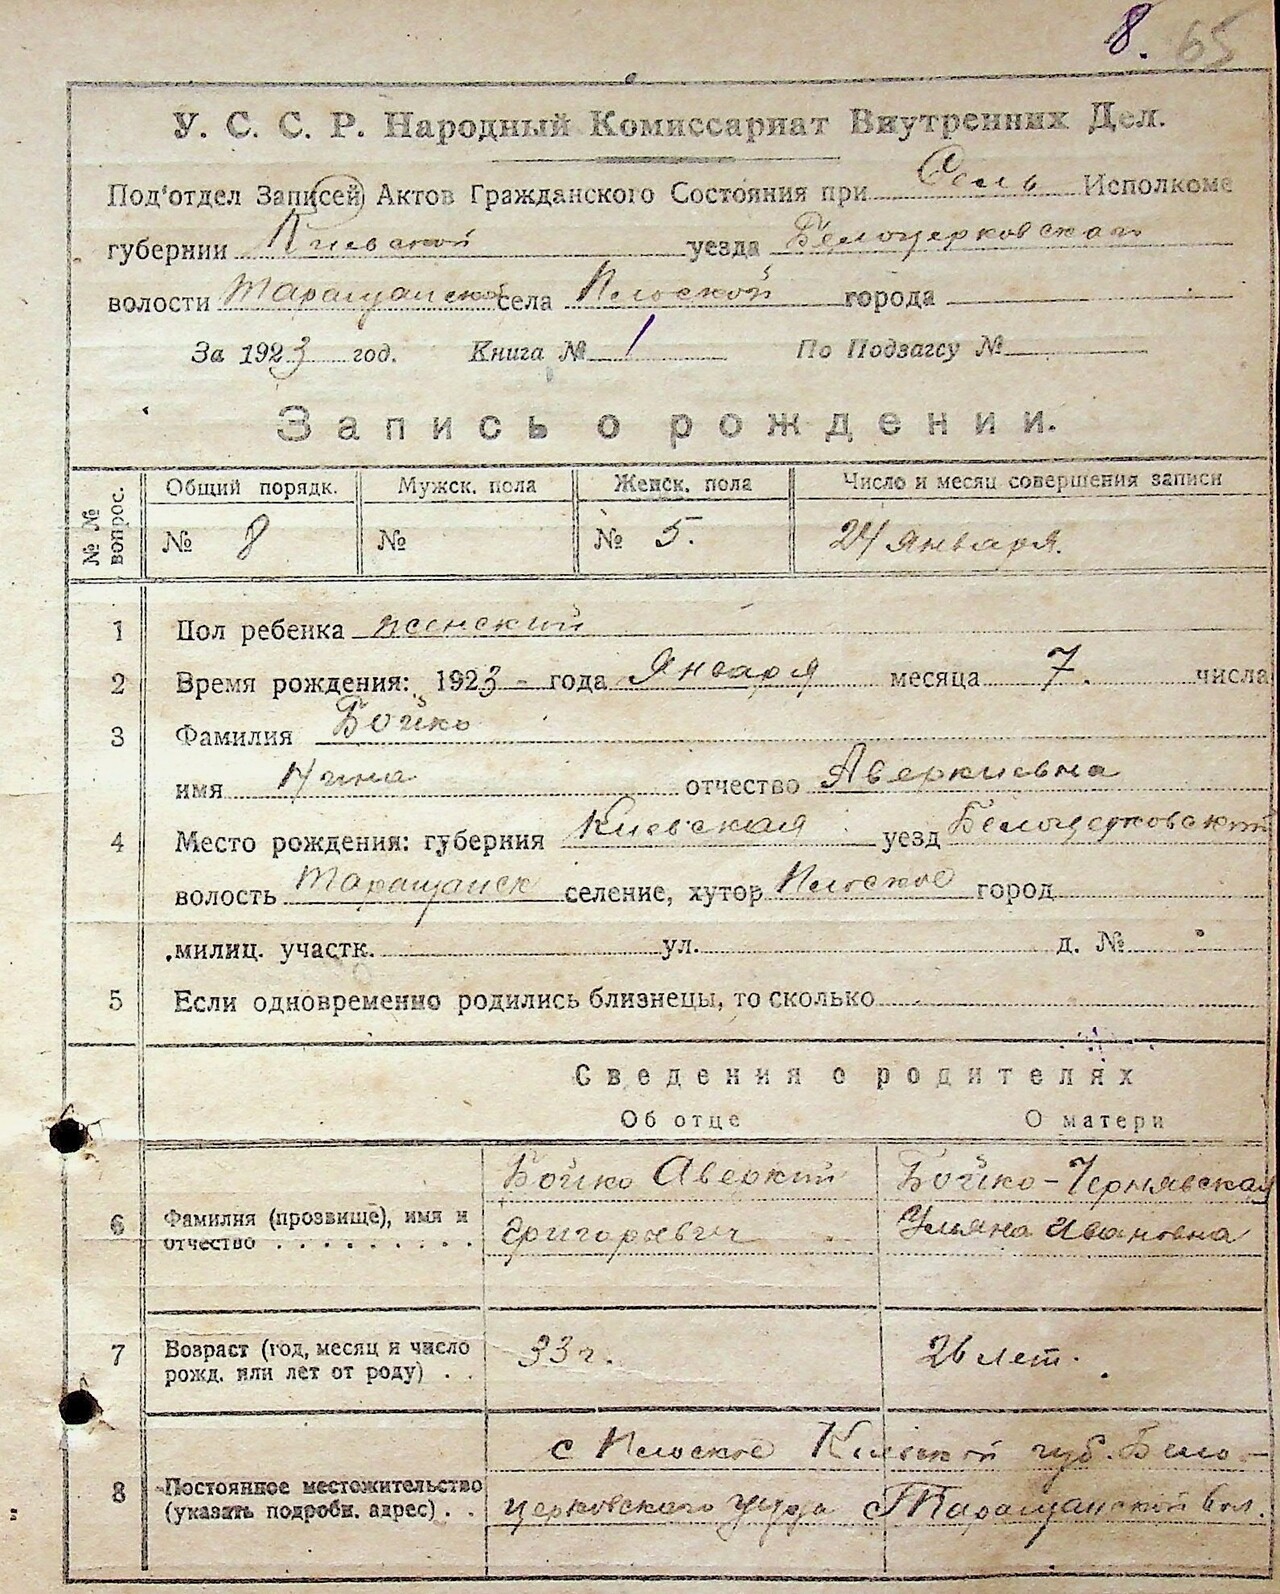 8. 65
У. С. С. Р. Народный Комиссариат Внутренних Дел.
Под'отдел Записей Актов Гражданского Состояния при Сель Исполкоме
губернии Киевской уезда Белоцерковского
волости Таращанской села Плоской города
За 1923 год. Книга № 1 По Подзагсу №
Запись о рождении.
№ № вопрос. Общий порядк. Мужск. пола Женск. пола Число и месяц совершения записи
№ 8 № № 5. 24 января.
1 Пол ребенка женский
2 Время рождения: 1923 - года Января месяца 7. числа
3 Фамилия Бойко
имя Нина отчество Аверкиевна
4 Место рождения: губерния Киевская уезд Белоцерковский
волость Таращанск селение, хутор Плоское город
милиц. участк. ул. д. №
5 Если одновременно родились близнецы, то сколько
Сведения о родителях
Об отце О матери
Бойко Аверкий Бойко-Чернявская
6 Фамилия (прозвище), имя и отчество . . . . . . . . . Григорьевич Ульяна Ивановна
7 Возраст (год, месяц и число рожд. или лет от роду) . . 33 г. 26 лет.
с Плоское Киевской губ. Бело-
8 Постоянное местожительство (указать подробн. адрес) . . церковского уезда Таращанской вол.